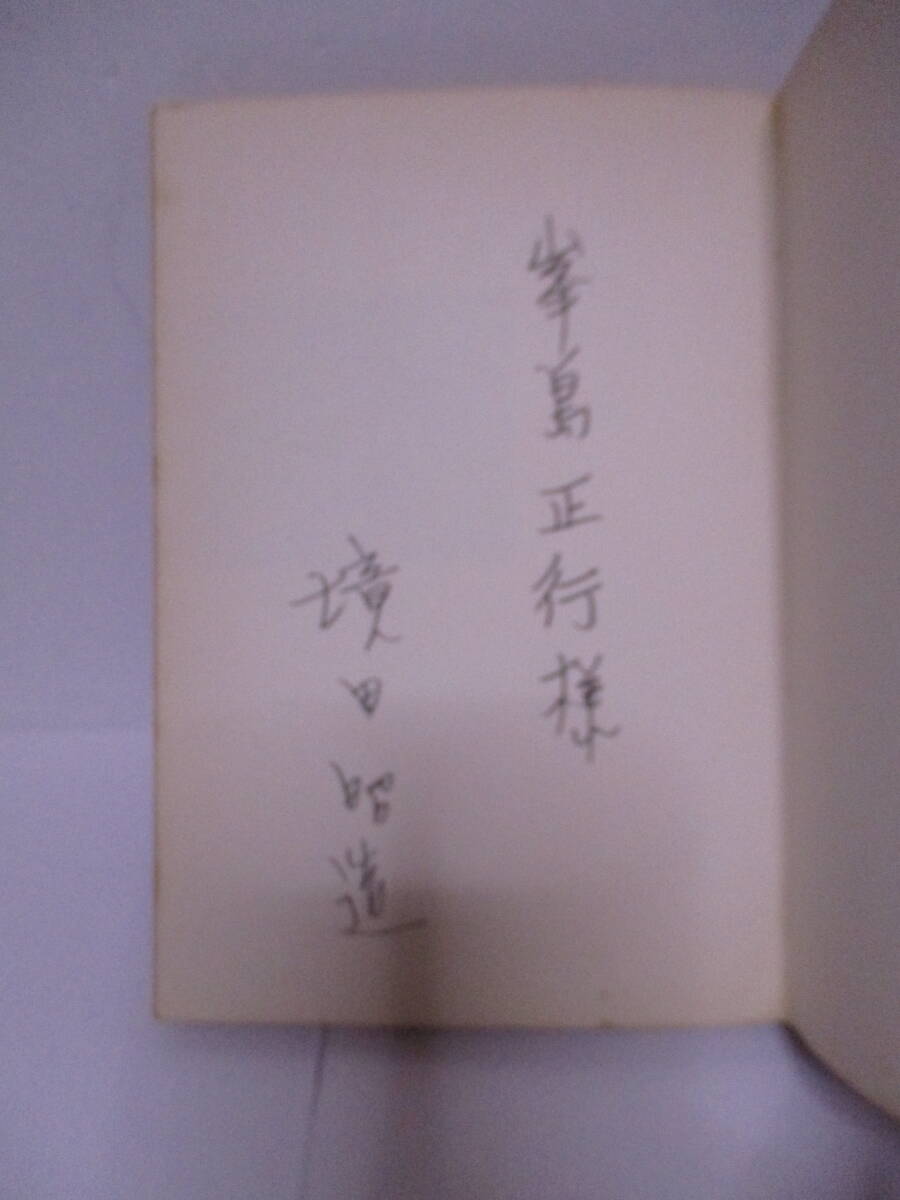 峯島正行様
境田昭造